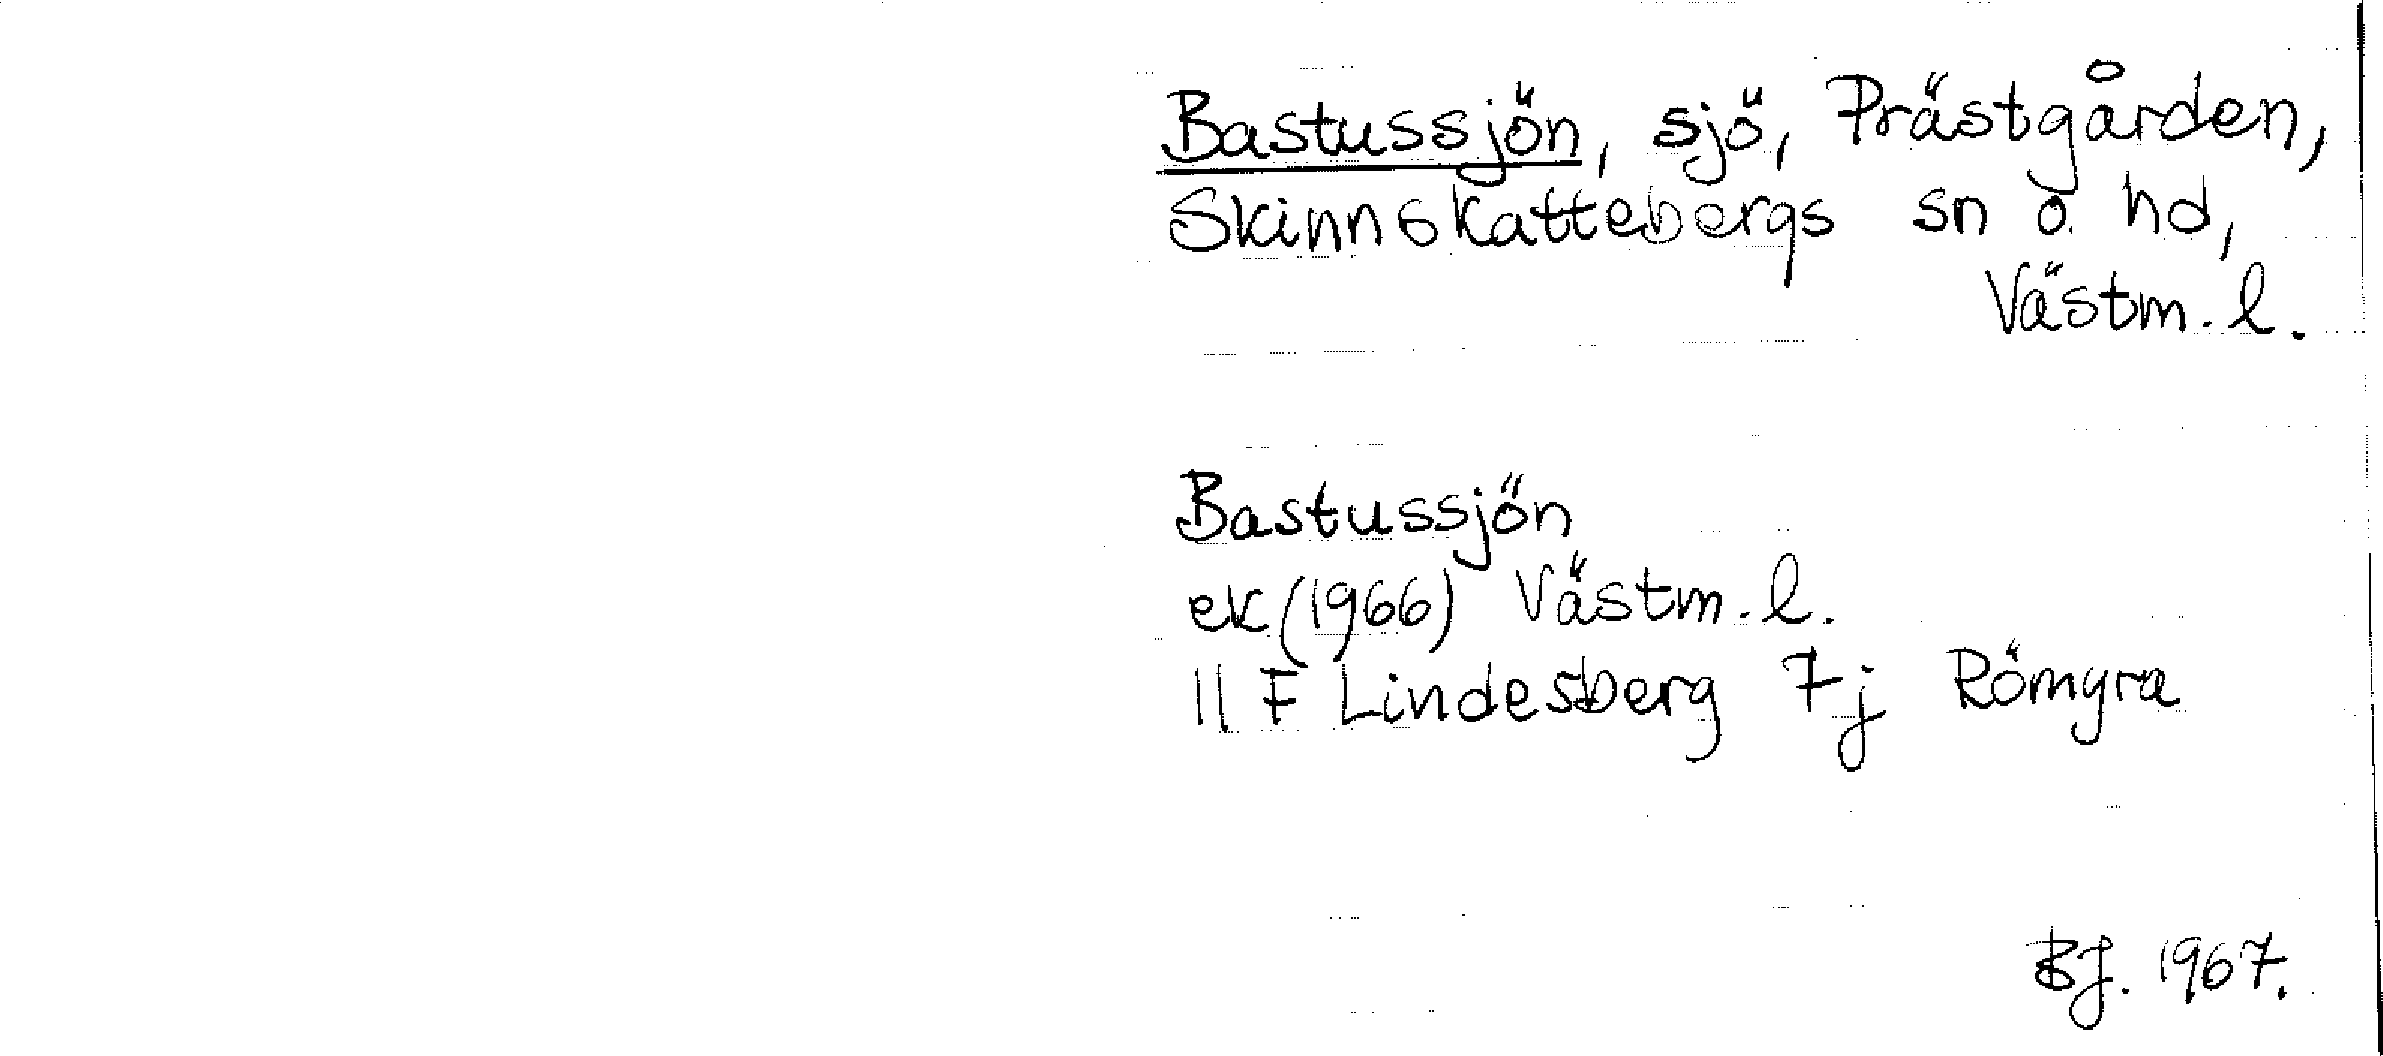 Bastussjön, sjö, Prästgården,
Skinnskattebergs sn o hd,
Västm. l.
Bastussjön
ek (1966) Västm. l.
11 F Lindesberg 7j Römyra
BJ. 1967.